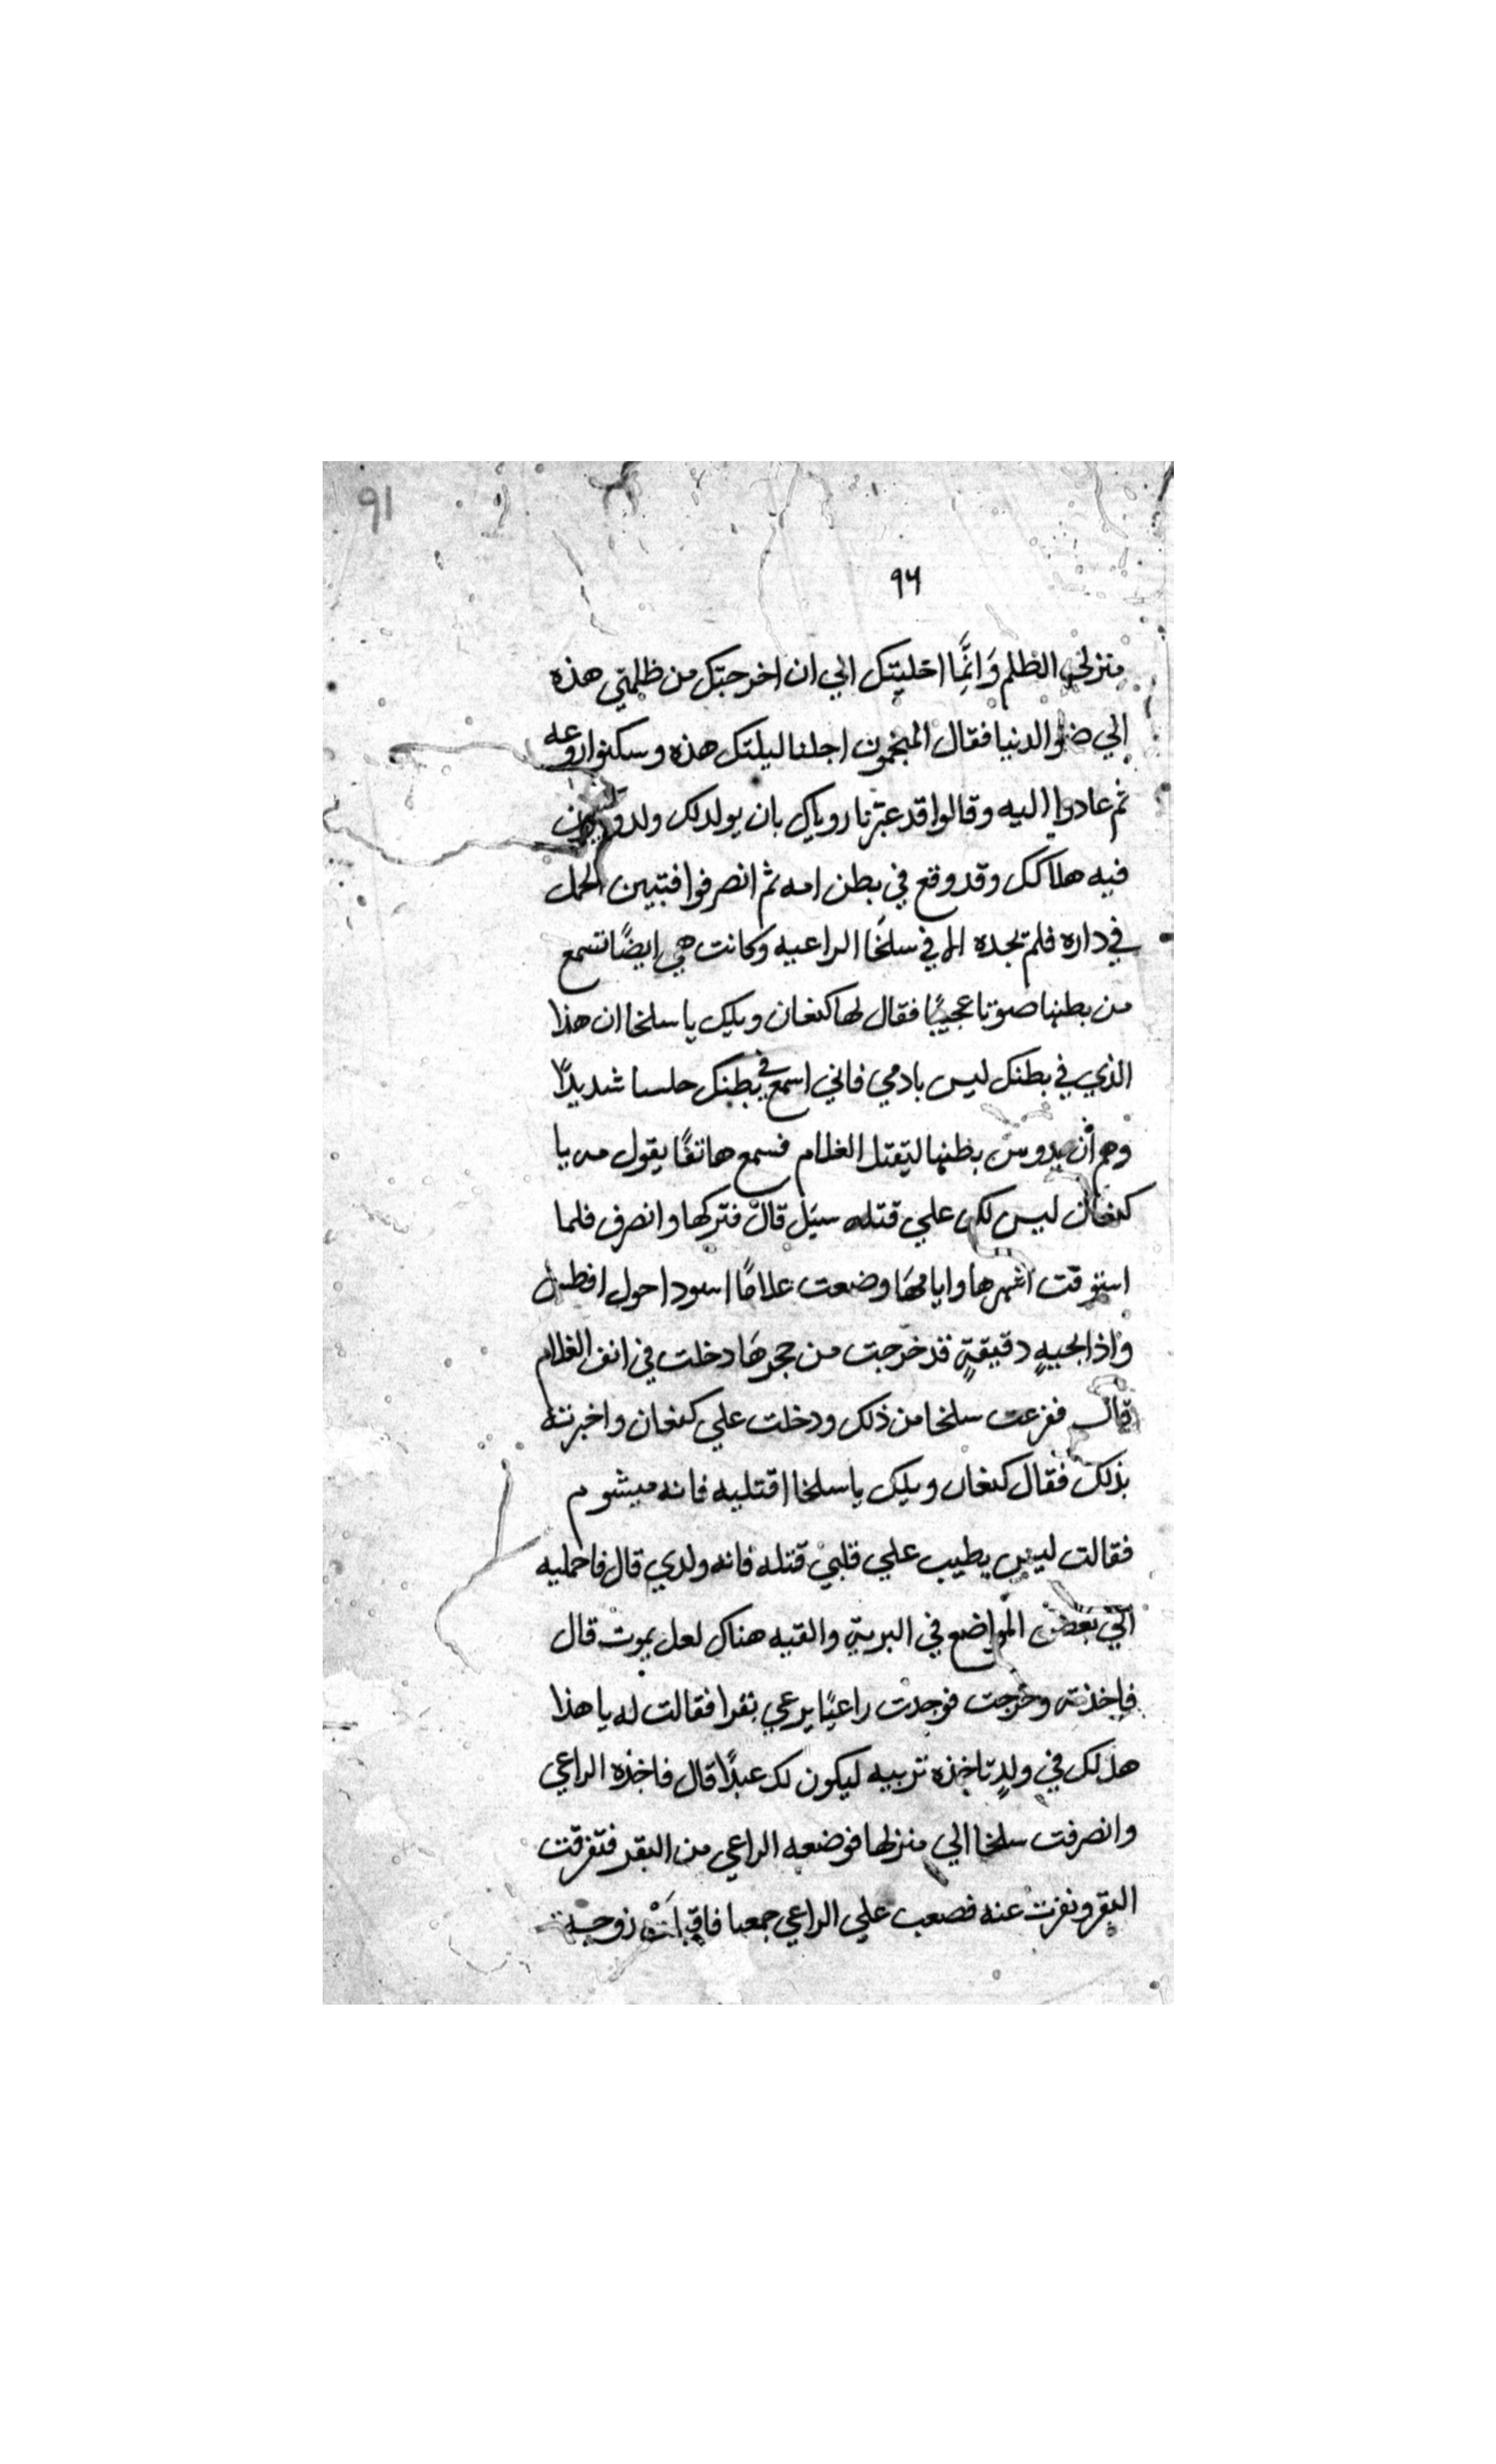 91
٩٦
منزلي الظلم وَانَّمِا اخليتك الي ان اخرجتك من ظلمتي هذه
الي ضو الدنيا فقال المنجمون اجلنا ليلتك هذه وسكنوا روعه
ثم عادوا اليه وقالوا قد عبّرنا روياك بان يولد لك ولد ويكون
فيه هلاكك وقد وقع في بطن امه ثم انصرفوا فتبين الحمل
في داره فلم تجده الا في سلخَا الراعيه وكانت هي ايضًا تسمع
من بطنها صوتا عجيبًا فقال لها كنعان ويلك يا سلخا ان هذا
الذي في بطنك ليس بادمي فاني اسمع في بطنك حلسا شديدًا
وهم أن يدوس بطنها ليقتل الغلام فسمع هاتفًا يقول مه يا
كنعان ليس لك علي قتله سبيل قال فتركها وانصرف فلما
استوفت اشهرها وايامهَا وضعت غلامًا اسود احول افطس
واذا بحيةٍ دقيقةٍ قد خرجت من حجرهَا دخلت في انف الغلام
قال ففزعت سلخا من ذلك ودخلت علي كنعان واخبرته
بذلك فقال كنعان ويلك يا سلخا اقتليه فانه ميشوم
فقالت ليس يطيب علي قلبي قتله فانه ولدي قال فاحمليه
الي بعض المواضع في البرية والقيه هناك لعل يموت قال
فاخذته وخرجت فوجدت راعيًا يرعي بقرا فقالت له يا هذا
هل لك في ولدٍ تاخذه تربيه ليكون لك عبدًا قال فاخذه الراعي
وانصرفت سلخا الي منزلها فوضعه الراعي من البقر فتفرقت
البقر ونفرت عنه فصعب علي الراعي جمعها فاقبلَتْ زوجة